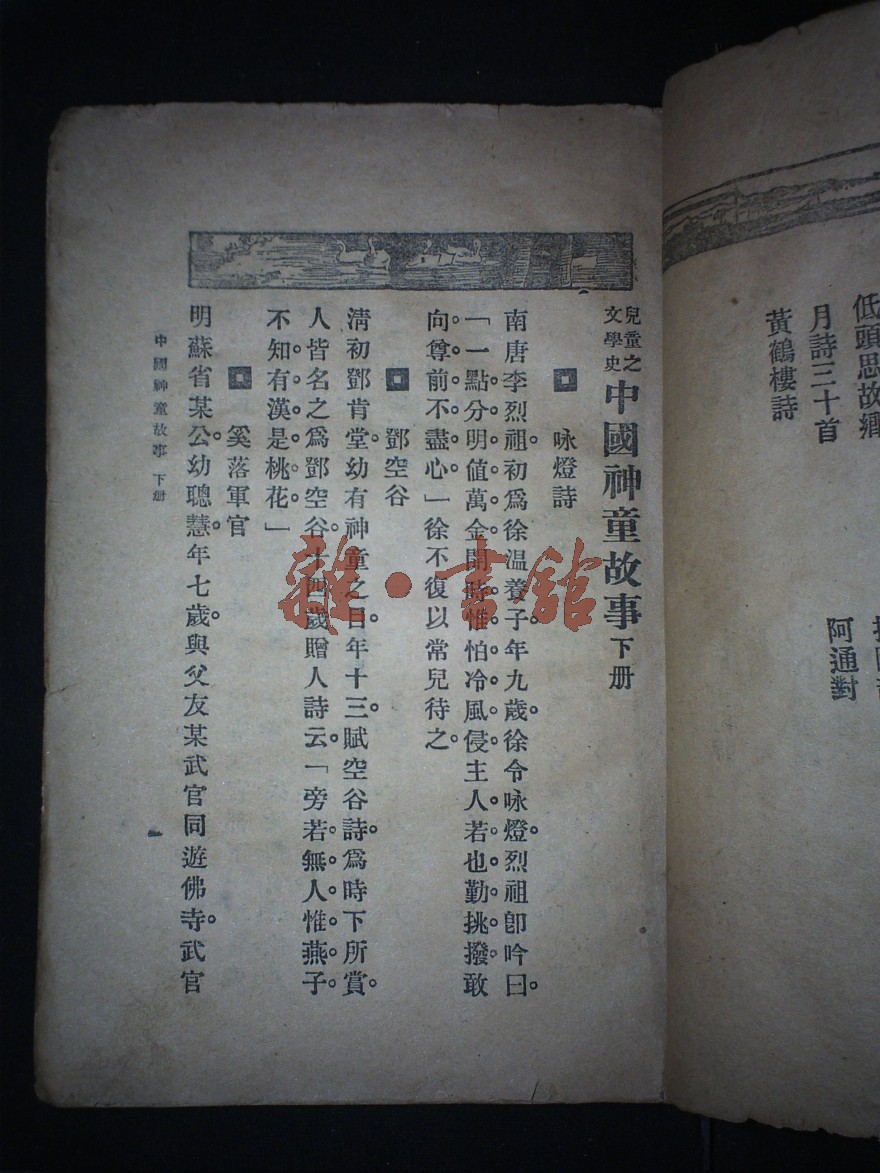 低頭思故鄉
月詩三十首
黃鶴樓詩
阿通對
兒童之
文學史
中國神童故事下册
咏燈詩
南唐李烈祖初爲徐温養子年九歲。徐令咏燈。烈祖卽吟曰。
「一點分明值萬金。開時惟怕冷風侵。主人若也勤挑撥。敢
向尊前不盡心。」徐不復以常兒待之。
鄧空谷
淸初鄧肯堂。幼有神童之目。年十三。賦空谷詩。爲時下所賞。
人皆名之爲鄧空谷。十四歲贈人詩云。「旁若無人惟燕子。
不知有漢是桃花。」
奚落軍官
明蘇省某公。幼聰慧。年七歲。與父友某武官同遊佛寺。武官
中國神童故事 下册
雜·書館